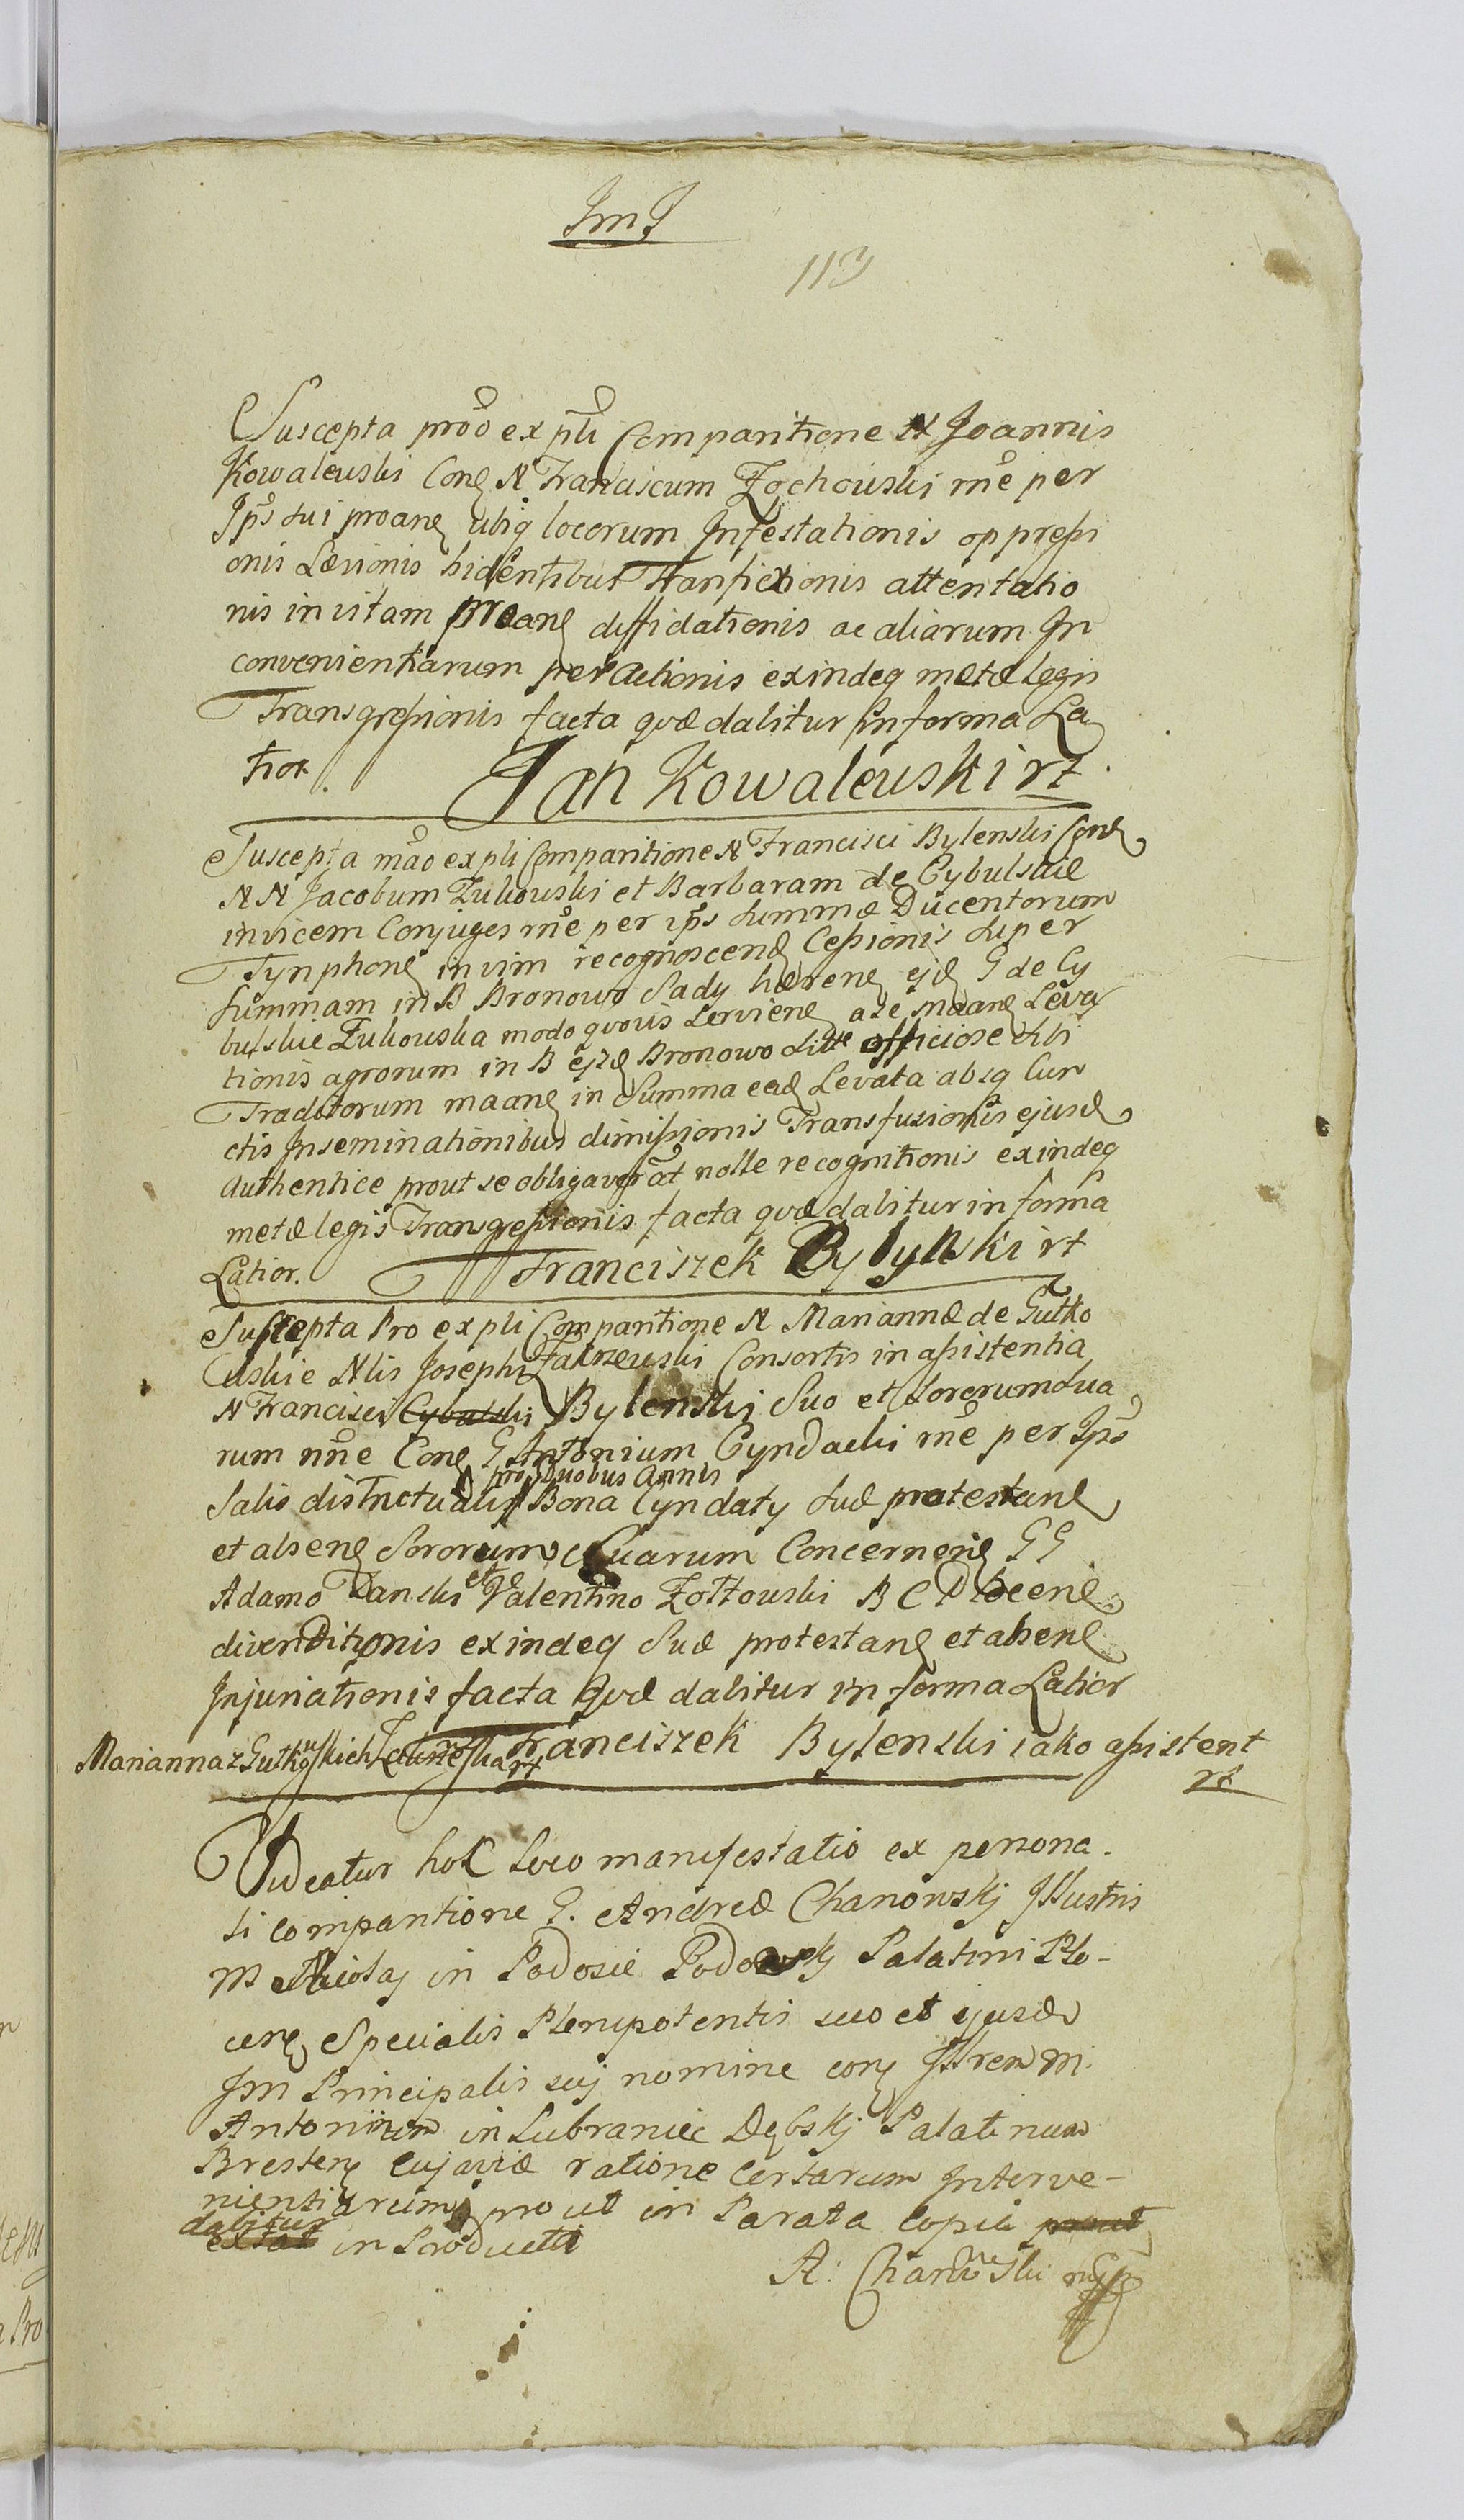 JmJ
113
Suscepta prõo ex pli Comparitione N Joannis
Kowalewski Conę N Franciscum Zochowski rñe per
Ips sui proanę ubiq locorum Infestationis oppressi
onis Læsionis bidentibus Tranfictionis attentatio
nis in vitam proanę diffidationis ac aliarum In
convenientiarum peractionis exindeq metæ legis
Transgressionis facta qvæ dabitur in forma La
tior.
Jan Kowalewski rt.
Suscepta mão ex pli Comparitione N Francisci Bylenski Conę
N N Jacobum Żukowski et Barbaram de Cybulskie
invicem Conjuges rñe per ips summæ Ducentorum
Tynphonę in vim recognoscenę Cessionis super
summam in B Bronowo Sady hærenę ejdę G de Cy
bulskie Żukowska modo qvovis servienę a se maanę Leva
tionis agrorum in B ejsdę Bronowo officiose sibi
Traditorum maanę in Summa eadę Levata absq Cun
ctis Inseminationibus dimissionis Transfusionis ejusdę
Authentice prout se obligaverat nolle recognitionis exindeq
metæ legis Transgressionis facta qvæ dabitur in forma
Latior.
Franciszek Bylynski rt
Suscepta Pro ex pli Comparitione N Mariannæ de Gutko
wskie Nlis Josephi Consortis in assistentia
N Francisci Cybulski Bylenski Suo et Sororum dua
rum nñe Conę G Antonium Cyndacki rñe per Ips
pro Duobus Annis
Salis districtualis Bona Cyndaty suæ protestanę
et absenę Sororum Suarum Concernenę GG
Adamo Danski et Valentino Żołtowski B C P
divenditionis exindeq Suæ protestanę et absenę
Injuriationis facta Qvæ dabitur in forma Latior
Marianna z Gutkowskich rt Franciszek Bylenski iako assistent
rt
Videatur hoc loco manifestatio ex persona
li comparitione G. Andreæ Chanowskj Illustris
M Nicolaj in Podosie Podoskj Palatini Plo-
cenę Specialis Plenipotentis suo et ejusdę
Jm Principalis suj nomine conę Illrem M.
Antonium in Lubraniec Dębskj Palatinum
Brestenę Cujaviæ ratione certarum Interve-
nientiarum prout in Parata copia prout
dabitur
extat in Producta
A: Chanowski mpp